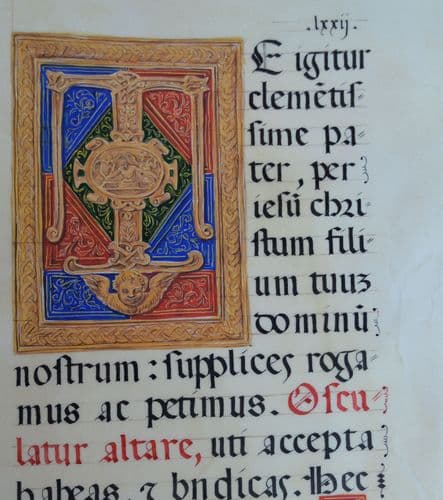 .lxxij.
T
E igitur
clemẽtis⸗
sime pa⸗
ter, per
iesũ chri⸗
stum fili⸗
um tuuʒ
dominũ
nostrum : supplices roga⸗
mus ac petimus. Oscu⸗
latur altare, uti accepta
habeas, ⁊ bñdicas. Hec